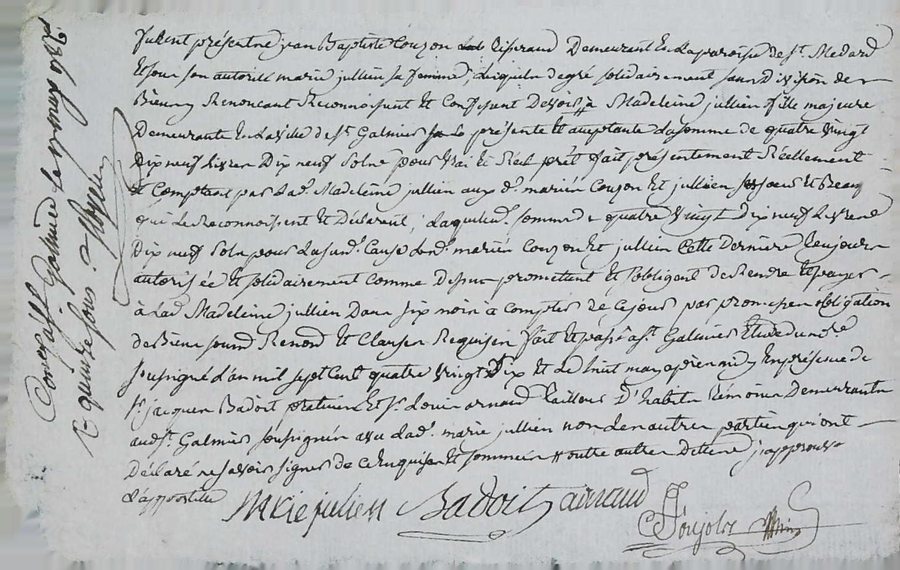 furent présents jean Baptiste Couzon Demeurant En la paroisse de st. Medard
Et sous son autorité marie jullien sa femme, Lesquels de gré solidairement sans Division de
Biens Renoncant Reconnoissent Et Confessent Devoir à Madeleine jullien fille majeure
Demeurante En la ville de st. Galmier présente Et acceptante La somme de quatre vingt
Dix neuf Livres Dix neuf sols pour vrai Et Réel prêt fait présentement Réellement
Et Comptant par Lad. Madeleine jullien aux d. mariés Couzon Et jullien ses sœur Et Beau
qui Le Reconnoissent Et Déclarent, Laquelle somme de quatre vingt Dix neuf Livres
Dix neuf sols pour La susd. Cause Lesd. mariés Couzon Et jullien Cette Derniere Toujours
autorisée Et solidairement Comme Dessus promettent Et s'obligent de Rendre Et payer
à Lad. Madeleine jullien Dans six mois à Compter de Ce jour par promesse obligation
de Biens soumis Renond. Et Clauses Requises fait Et passé à st. Galmier Etude du no.re
soussigné L'an mil sept Cent quatre vingt Dix Et Le huit may après midi En présence de
sr. jacques Badoit praticien Et sr. Louis arnaud Tailleur D'habits Témoins Demeurants
aud. st. Galmier soussignés avec Lad. marie jullien non Les autres parties qui ont
Déclaré ne savoir signer de Ce Enquises Et sommées j'approuve
L'apostille
Marie julien Badoit arnaud
Pourjolos
Controllé à st Galmier le
R. quinze sous